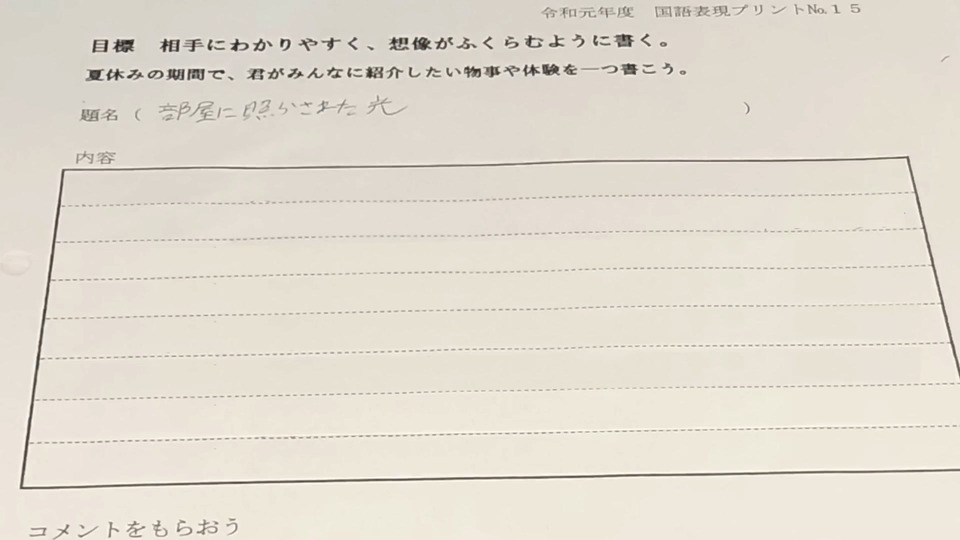 令和元年度 国語表現プリント№１５
目標 相手にわかりやすく、想像がふくらむように書く。
夏休みの期間で、君がみんなに紹介したい物事や体験を一つ書こう。
題名（ 部屋に照らされた光 ）
内容
コメントをもらおう